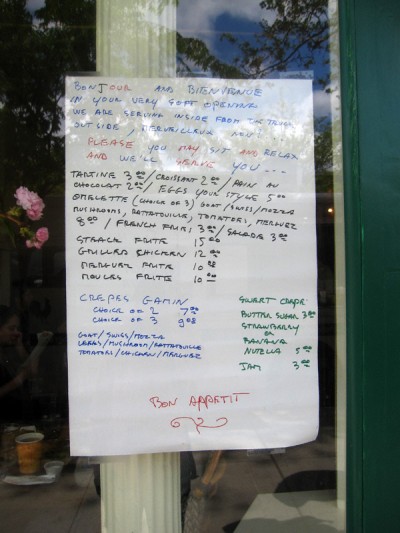 BONJOUR AND BIENVENUE
IN YOUR VERY SOFT OPENING
WE ARE SERVING INSIDE FROM THE
OUTSIDE / MERVEILLEUX NON?
PLEASE YOU MAY SIT AND RELAX
AND WE'LL SERVE YOU...
TARTINE 3 00 / CROISSANT 2 00 / PAIN AU
CHOCOLAT 2 00 / EGGS YOUR STYLE 5 00
OMELETTE (CHOICE OF 3) GOAT / SWISS / MOZZA
MUSHROOMS, RATATOUILLE, TOMATOES, MERGUEZ
8 00 / FRENCH FRIES 3 00 / SALADE 3 00
STEACK FRITE 15 00
GRILLED CHICKEN 12 00
MERGUEZ FRITE 10 00
MOULES FRITE 10 00
CREPES GAMIN
CHOICE OF 2 7 00
CHOICE OF 3 9 00
GOAT / SWISS / MOZZA
MUSHROOM / RATTATOUILLE
TOMATOES / CHICKEN / MERGUEZ
SWEET CREPE
BUTTER SUGAR 3 00
STRAWBERRY
OR
BANANA
NUTELLA 5 00
JAM 3 00
BON APPETIT